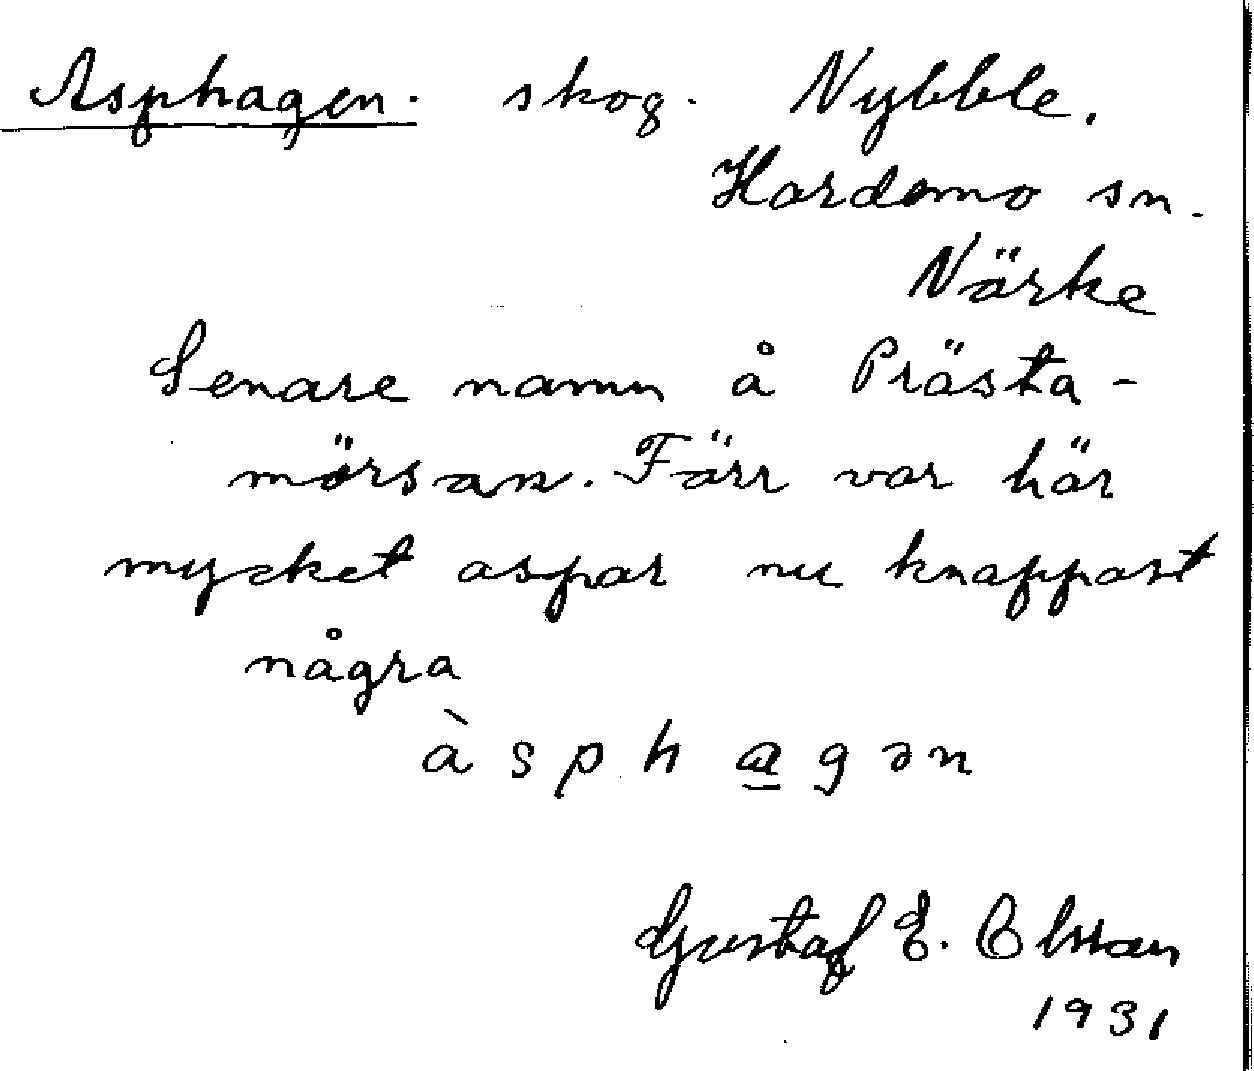 Asphagen. skog. Nybble.
Hardemo sn.
Närke
Senare namn å Prästa-
mörsan. Färr var här
mycket aspar nu knappast
några
àsphagən
Gustaf E. Olsson
1931